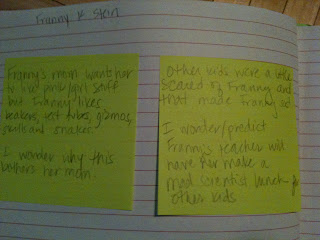 Franny K Stein
Franny's mom wants her
to like pink/girl stuff
but Franny likes
beakers, test tubes, gizmos,
skulls and snakes.
I wonder why this
bothers her mom.
Other kids were a little
scared of Franny and
that made Franny sad
I wonder/predict
Franny's teacher will
have her make a
mad scientist lunch for
other kids